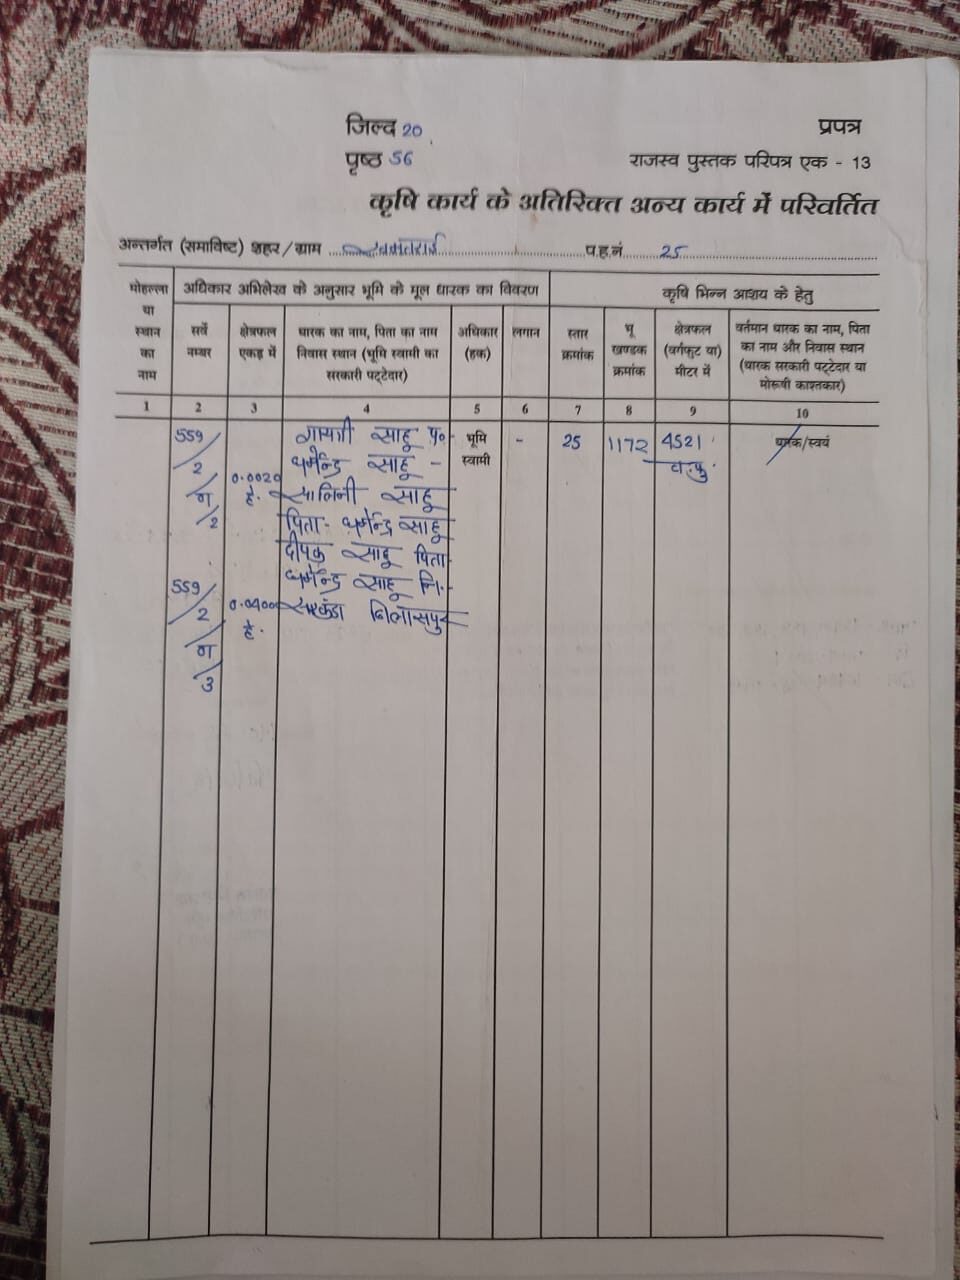 जिल्द 20
प्रपत्र
पृष्ठ 56
राजस्व पुस्तक परिपत्र एक - 13
कृषि कार्य के अतिरिक्त अन्य कार्य में परिवर्तित
अन्तर्गत (समाविष्ट) शहर/ग्राम खमतराई प.ह.नं. 25
मोहल्ला या स्थान का नाम
अधिकार अभिलेख के अनुसार भूमि के मूल धारक का विवरण
कृषि भिन्न आशय के हेतु
सर्वे नम्बर
क्षेत्रफल एकड़ में
धारक का नाम, पिता का नाम
निवास स्थान (भूमि स्वामी का
सरकारी पट्टेदार)
अधिकार (हक)
लगान
स्तार क्रमांक
भू खण्डक क्रमांक
क्षेत्रफल (वर्गफुट या) मीटर में
वर्तमान धारक का नाम, पिता
का नाम और निवास स्थान
(धारक सरकारी पट्टेदार या
मोरूषी काश्तकार)
1 2 3 4 5 6 7 8 9 10
559/2/ग/2
0.0020 हे.
559/2/ग/3
0.0400 हे.
गायत्री साहू प.
धर्मेन्द्र साहू -
सालिनी साहू
पिता- धर्मेन्द्र साहू
दीपक साहू पिता
धर्मेन्द्र साहू नि.-
सरकंडा बिलासपुर
भूमि स्वामी
-
25
1172
4521 व.फु
धारक/स्वयं